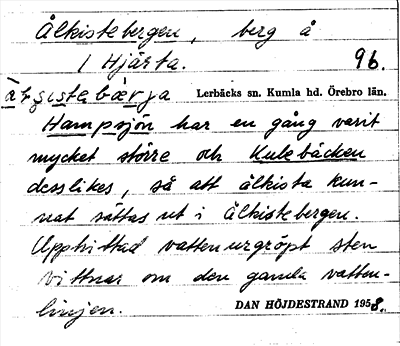 Ålkistebergen, berg å
1 Hjärta. 96.
Lerbäcks sn. Kumla hd. Örebro län.
Hampsjön har en gång varit
mycket större och Kulebäcken
desslikes, så att ålkista kun-
nat sättas ut i Ålkistebergen.
Upphittad vattenurgröpt sten
vittnar om den gamla vatten-
linjen. DAN HÖJDESTRAND 1958.